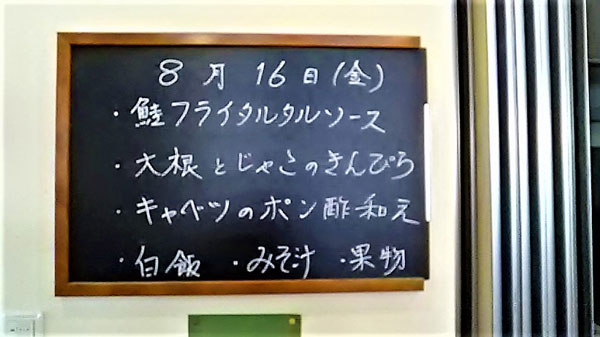 8月16日(金)
・鮭フライタルタルソース
・大根とじゃこのきんぴら
・キャベツのポン酢和え
・白飯 ・みそ汁 ・果物